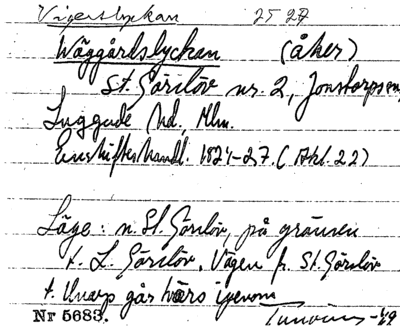 Vigerslyckan 25 27
Wäggårdslyckan (åker)
St. Görslöv nr. 2, Jonstorps sn,
Luggude hd, Mlm.
Enskifteshandl. 1824-27. (Akt. 22)
Läge: n. St. Görslöv, på gränsen
t. L. Görslöv. Vägen fr. St. Görslöv
t. Unarp går tvärs igenom
Nr 5683.